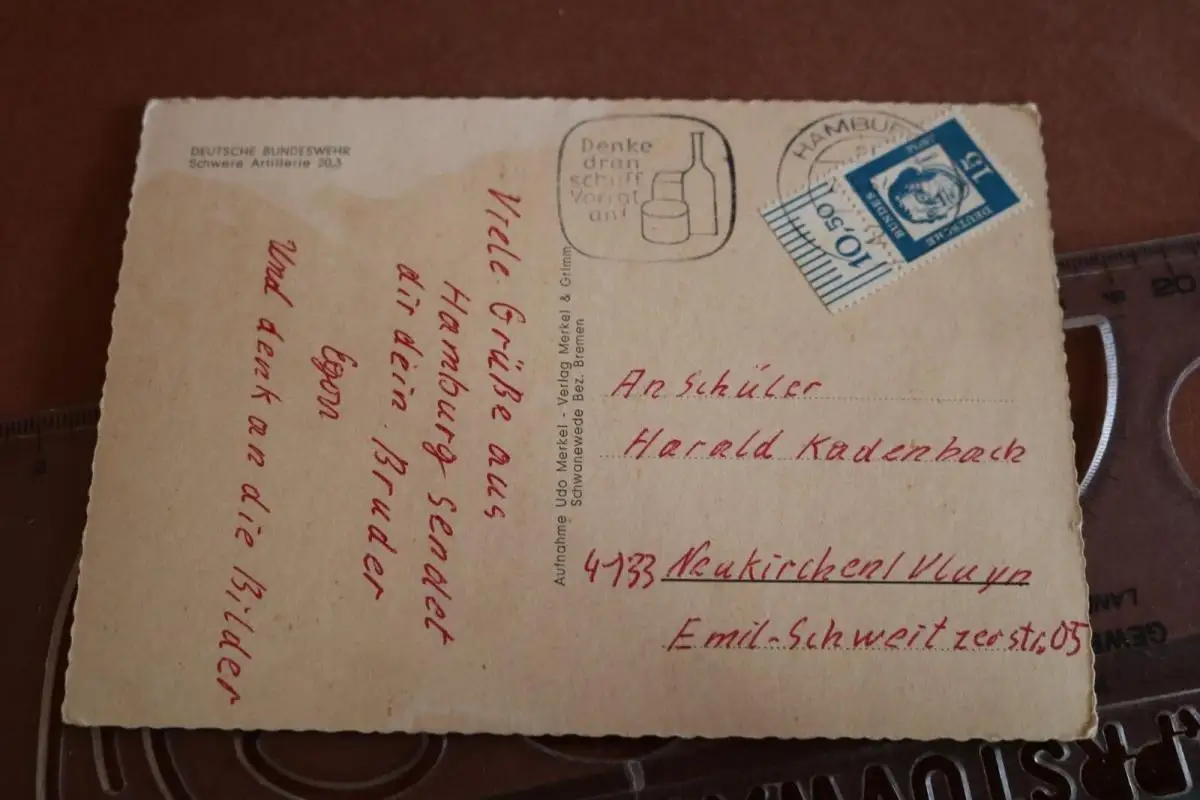 DEUTSCHE BUNDESWEHR
Schwere Artillerie 20,3
Viele Grüße aus
Hamburg sendet
dir dein Bruder
Egon
Und denk an die Bilder
Aufnahme Udo Merkel - Verlag Merkel & Grimm
Schwanewede Bez. Bremen
Denke
dran
schaff
Vorrat
an!
HAMBUR
15
DEUTSCHE
BUNDES
10,50
An Schüler
Harald Kadenbach
4133 Neukirchen/Vluyn
Emil-Schweitzerstr. 05